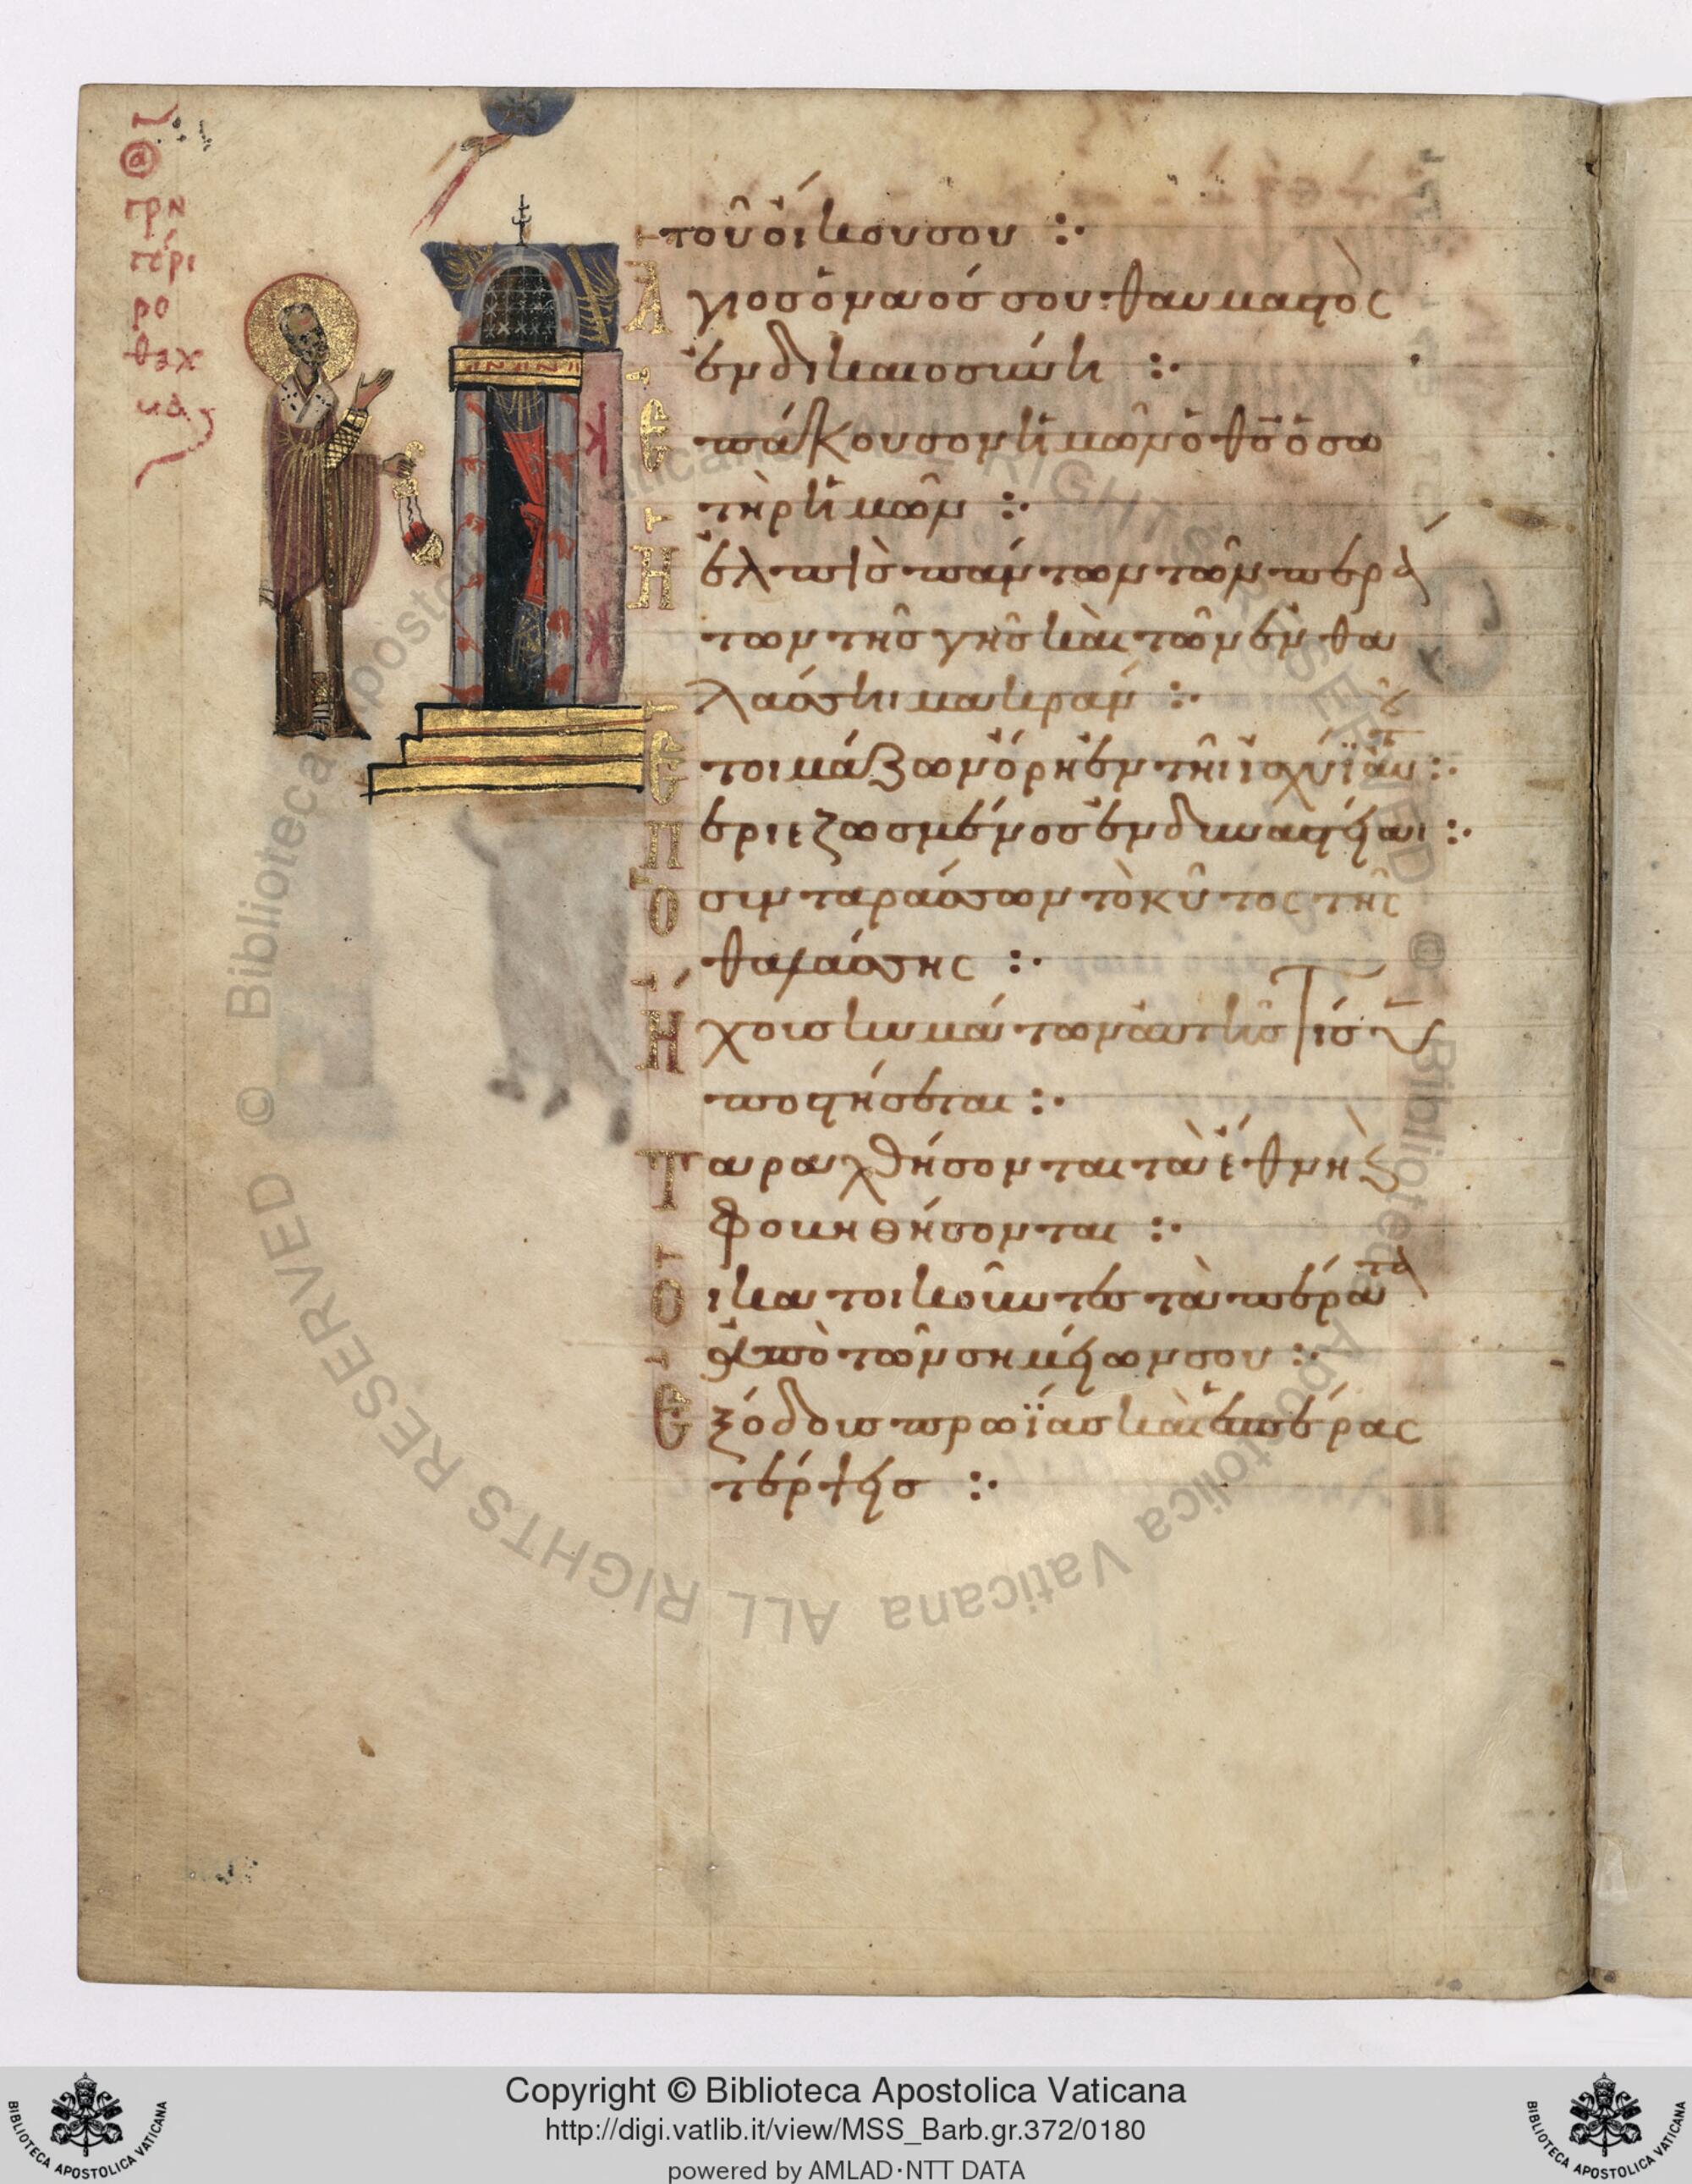 τοῦ οἴκου σου :·
Ἅγιος ὁ ναός σου· θαυμαστὸς
ἐν δικαιοσύνῃ :·
Ἐπάκουσον ἡμῶν ὁ θς ὁ σω
τὴρ ἡμῶν :·
Ἡ ἐλπὶς πάντων τῶν περά
των τῆς γῆς καὶ τῶν ἐν θα
λάσσηι μακράν :·
Ἑτοιμάζων ὄρη ἐν τῆι ἰσχύϊ ἀυτ :·
Περιεζωσμένος ἐν δυναστείαι :·
Ὁ συνταράσσων τὸ κῦτος τῆς
θαλάσσης :·
Ἤχους κυμάτων αὐτῆς τίς ὑ
ποστήσεται :·
Ταραχθήσονται τὰ ἔθνη ϗ
φοβηθήσονται :·
Οἱ κατοικοῦντες τὰ πέρατα
ἀπὸ τῶν σημείων σου :·
Ἐξόδους πρωΐας καὶ ἑσπέρας
τέρψεις :·
Copyright © Biblioteca Apostolica Vaticana
http://digi.vatlib.it/view/MSS_Barb.gr.372/0180
powered by AMLAD·NTT DATA
BIBLIOTECA APOSTOLICA VATICANA
BIBLIOTECA APOSTOLICA VATICANA
© Biblioteca Apostolica Vaticana ALL RIGHTS RESERVED
© Biblioteca Apostolica Vaticana ALL RIGHTS RESERVED